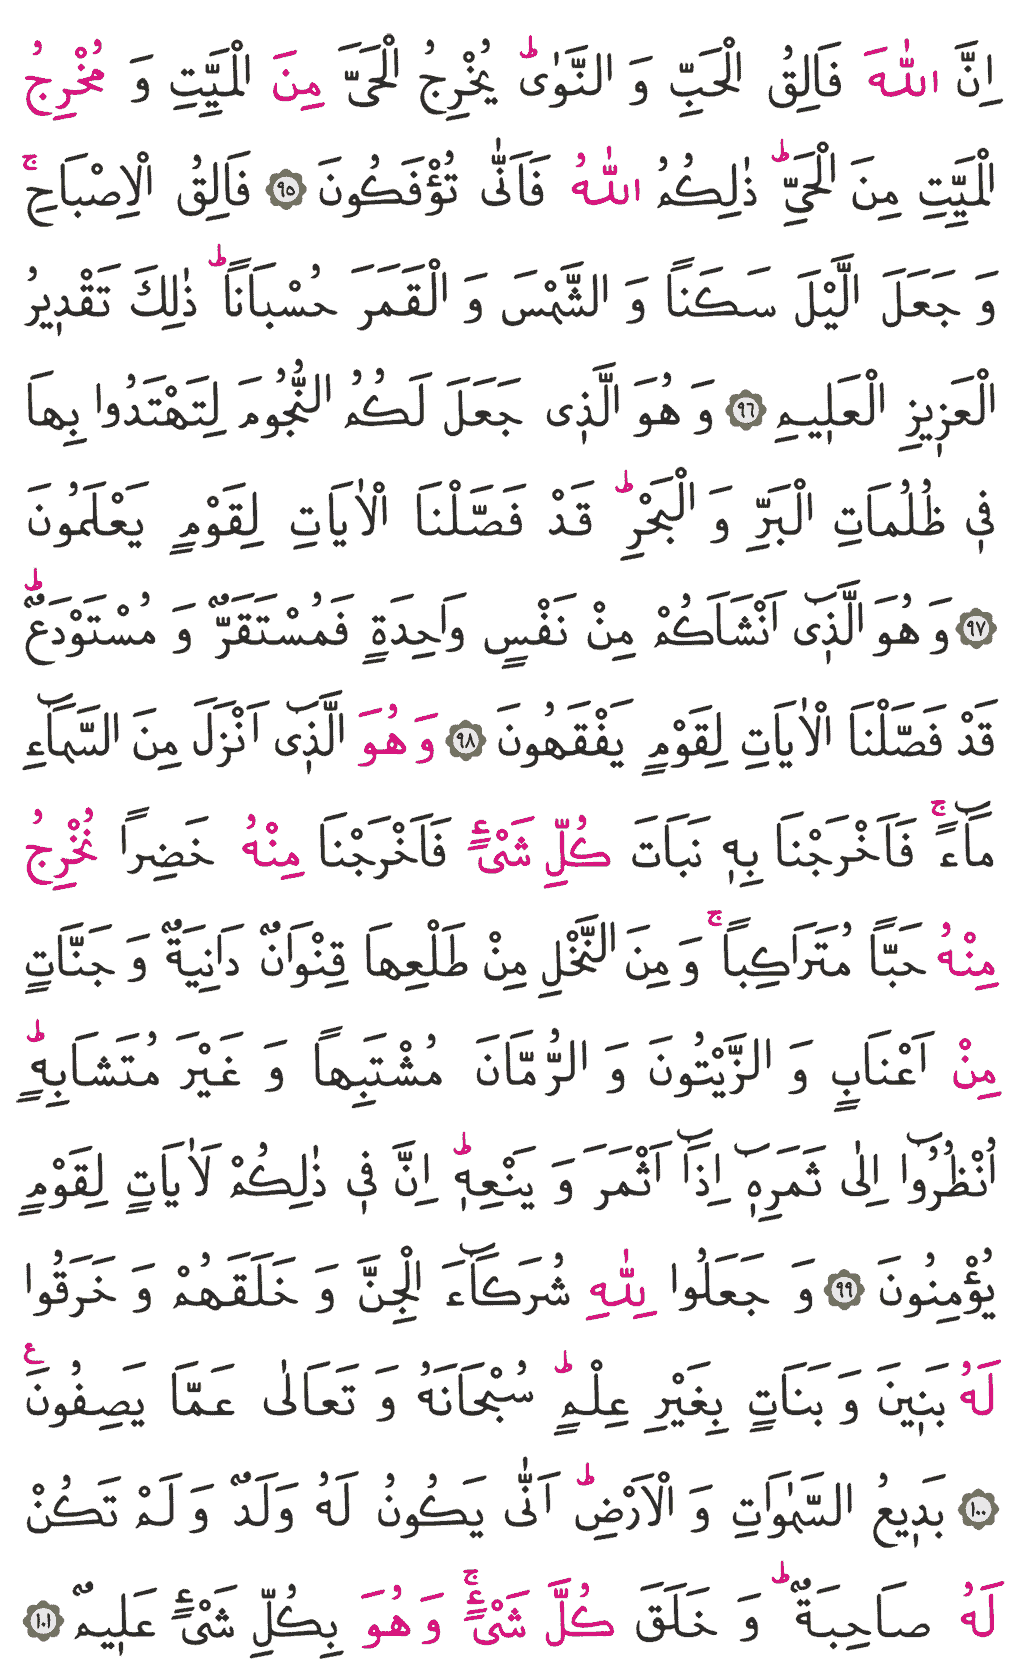 اِنَّ اللّٰهَ فَالِقُ الْحَبِّ وَ النَّوٰىؕ يُخْرِجُ الْحَىَّ مِنَ الْمَيِّتِ وَ مُخْرِجُ
الْمَيِّتِ مِنَ الْحَىِّؕ ذٰلِكُمُ اللّٰهُ فَاَنّٰى تُؤْفَكُونَ ﴿٩٥﴾ فَالِقُ الْاِصْبَاحِۚ
وَ جَعَلَ الَّيْلَ سَكَنًا وَ الشَّمْسَ وَ الْقَمَرَ حُسْبَانًاؕ ذٰلِكَ تَقْدٖيرُ
الْعَزٖيزِ الْعَلٖيمِ ﴿٩٦﴾ وَ هُوَ الَّذٖى جَعَلَ لَكُمُ النُّجُومَ لِتَهْتَدُوا بِهَا
فٖى ظُلُمَاتِ الْبَرِّ وَ الْبَحْرِؕ قَدْ فَصَّلْنَا الْاٰيَاتِ لِقَوْمٍ يَعْلَمُونَ
﴿٩٧﴾ وَ هُوَ الَّذٖٓى اَنْشَاَكُمْ مِنْ نَفْسٍ وَاحِدَةٍ فَمُسْتَقَرٌّ وَ مُسْتَوْدَعٌؕ
قَدْ فَصَّلْنَا الْاٰيَاتِ لِقَوْمٍ يَفْقَهُونَ ﴿٩٨﴾ وَ هُوَ الَّذٖٓى اَنْزَلَ مِنَ السَّمَٓاءِ
مَٓاءًۚ فَاَخْرَجْنَا بِهٖ نَبَاتَ كُلِّ شَىْءٍ فَاَخْرَجْنَا مِنْهُ خَضِرًا نُخْرِجُ
مِنْهُ حَبًّا مُتَرَاكِبًاۚ وَ مِنَ النَّخْلِ مِنْ طَلْعِهَا قِنْوَانٌ دَانِيَةٌ وَ جَنَّاتٍ
مِنْ اَعْنَابٍ وَ الزَّيْتُونَ وَ الرُّمَّانَ مُشْتَبِهًا وَ غَيْرَ مُتَشَابِهٍؕ
اُنْظُرُٓوا اِلٰى ثَمَرِهٖٓ اِذَٓا اَثْمَرَ وَ يَنْعِهٖؕ اِنَّ فٖى ذٰلِكُمْ لَاٰيَاتٍ لِقَوْمٍ
يُؤْمِنُونَ ﴿٩٩﴾ وَ جَعَلُوا لِلّٰهِ شُرَكَٓاءَ الْجِنَّ وَ خَلَقَهُمْ وَ خَرَقُوا
لَهُ بَنٖينَ وَ بَنَاتٍ بِغَيْرِ عِلْمٍؕ سُبْحَانَهُ وَ تَعَالٰى عَمَّا يَصِفُونَ ع
﴿١٠٠﴾ بَدٖيعُ السَّمٰوَاتِ وَ الْاَرْضِؕ اَنّٰى يَكُونُ لَهُ وَلَدٌ وَ لَمْ تَكُنْ
لَهُ صَاحِبَةٌؕ وَ خَلَقَ كُلَّ شَىْءٍۚ وَ هُوَ بِكُلِّ شَىْءٍ عَلٖيمٌ ﴿١٠١﴾